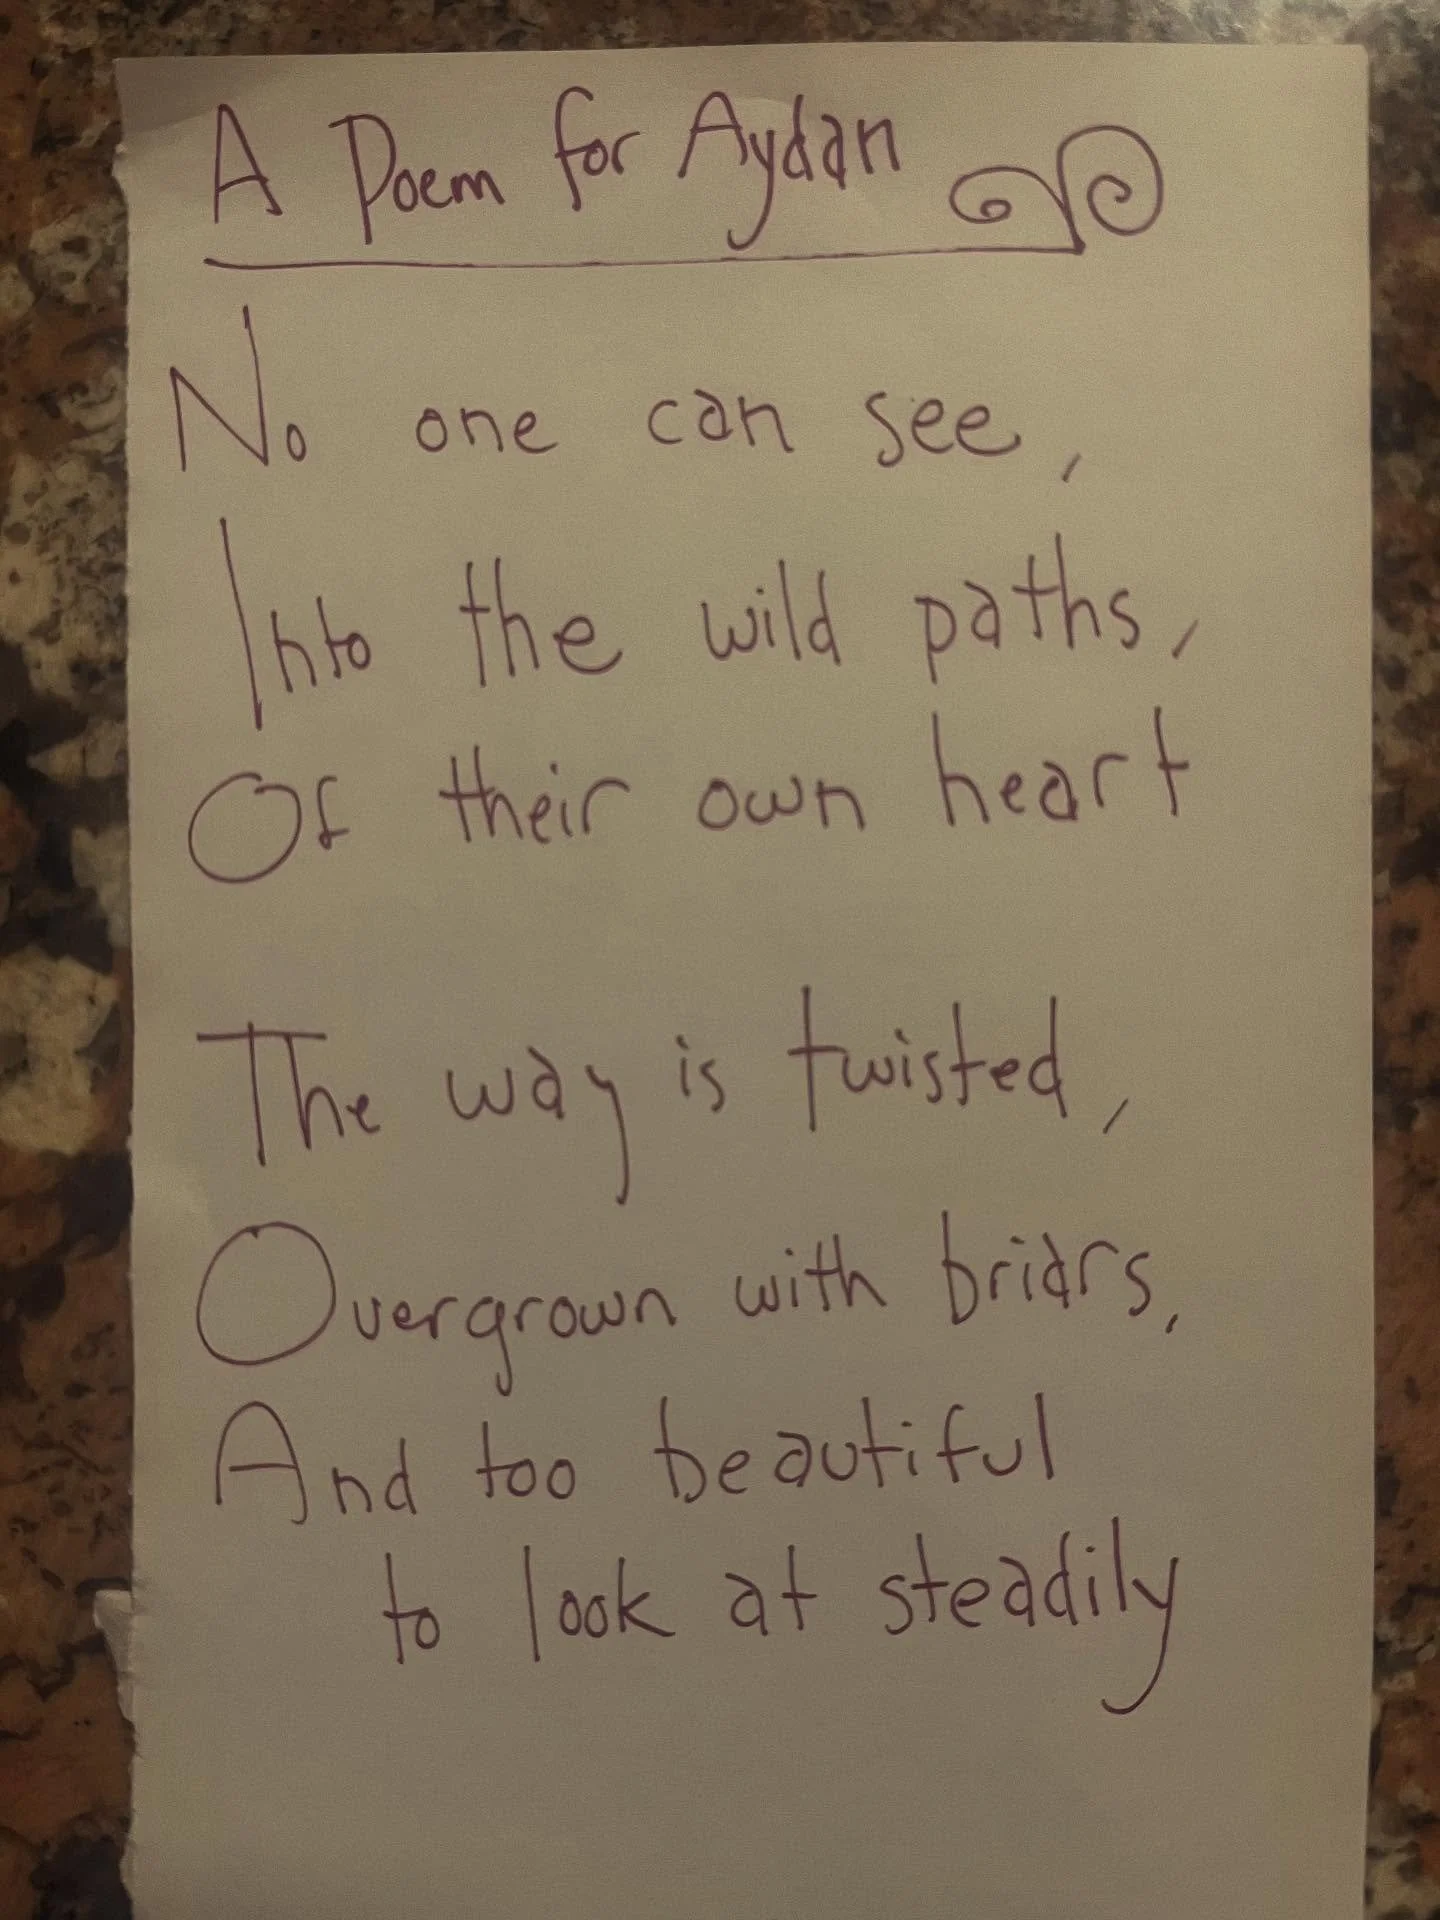 A Poem for Aydan
No one can see,
Into the wild paths,
Of their own heart
The way is twisted,
Overgrown with briars,
And too beautiful
to look at steadily